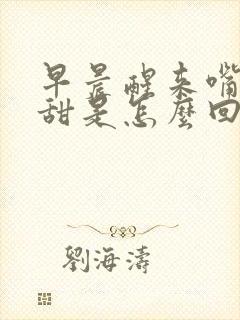 早晨醒来嘴
甜是怎麼回
劉海濤